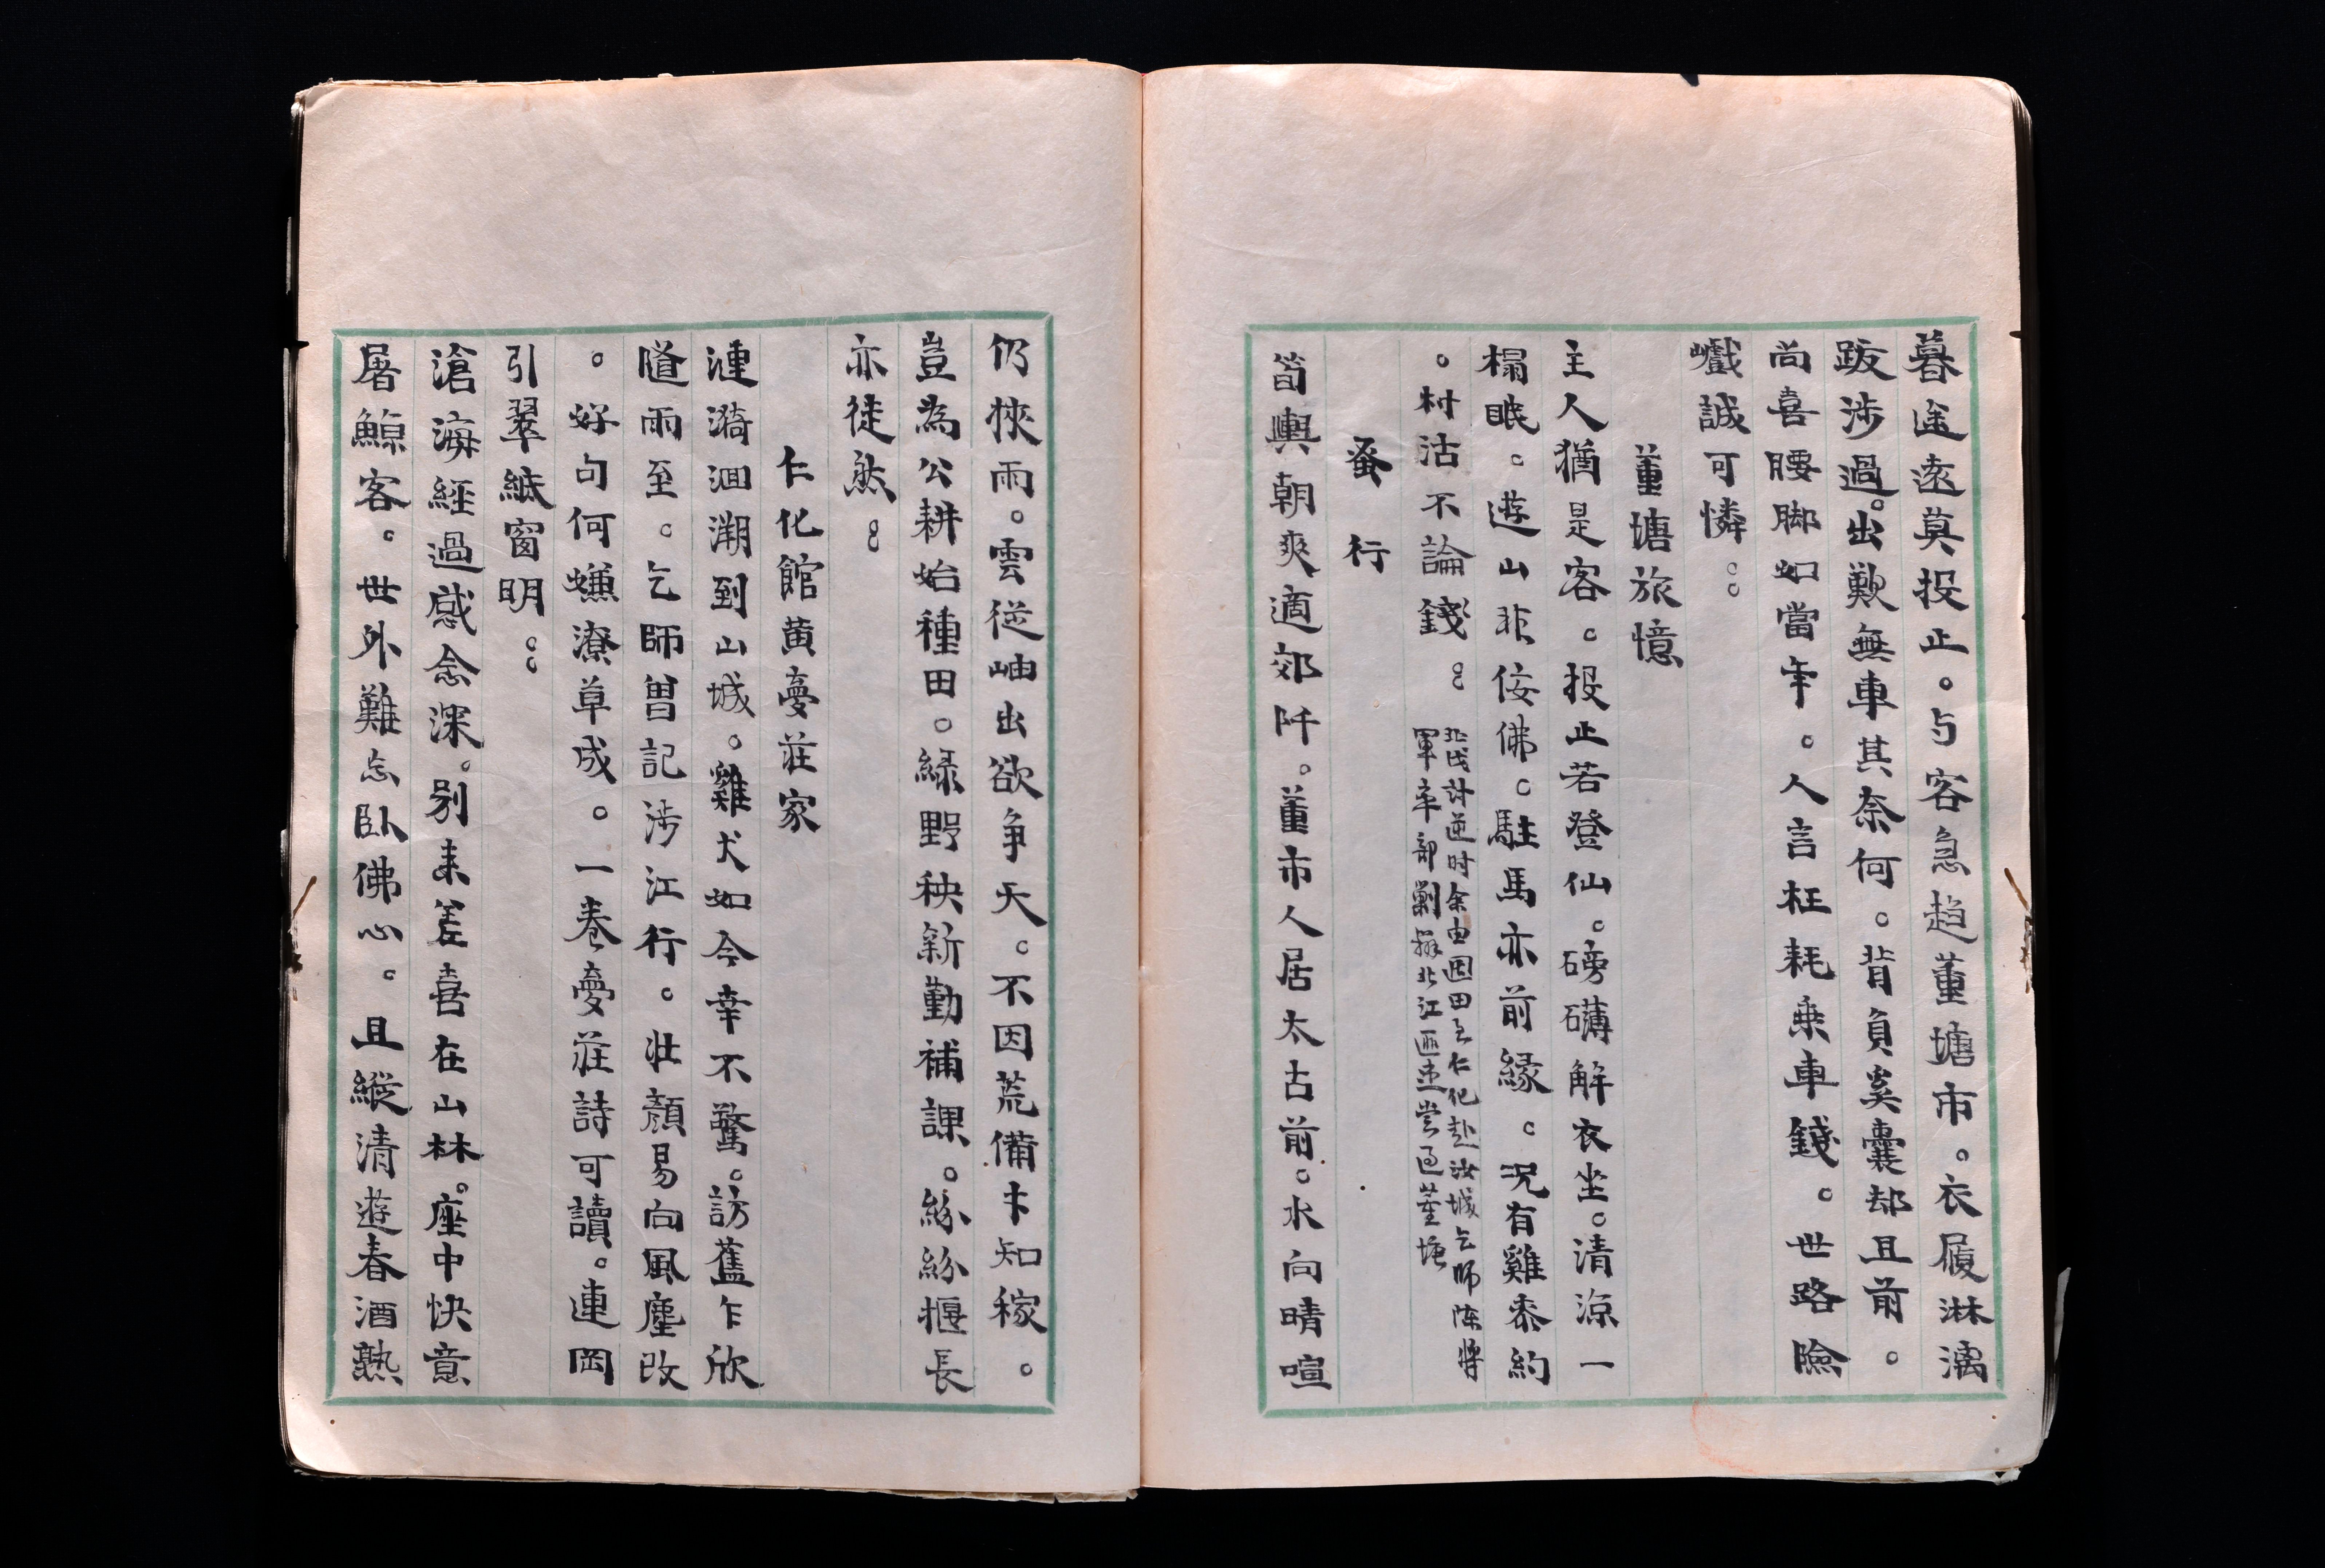 暮途遠莫投止。与客急趋董塘市。衣履淋漓
跋涉過。出歎無車其奈何。背負奚囊却且前。
尚喜腰脚如當年。人言枉耗乘車錢。世路險
巇誠可憐。。
董塘旅憶
主人猶是客。投止若登仙。磅礴解衣坐。清涼一
榻眠。遊山非佞佛。駐馬亦前緣。况有雞黍約
。村沽不論錢。。
北伐討逆时余由囬田至仁化赴汝城乞师陈將
軍率部剿撫北江匪逆嘗过董塘
蚤行
筍輿朝爽適郊阡。董市人居太古前。水向晴喧
仍挾雨。雲從岫出欲争天。不因荒備卡知稼。
豈為公耕始種田。緑野秧新勤補課。絲絲揠長
亦徒然。。
仁化館黄夢莊家
漣漪洄溯到山城。雞犬如今幸不驚。訪舊乍欣
隨雨至。乞師曽記涉江行。壮顏易向風塵改
。好句何嫌潦草成。一卷夢莊詩可讀。連岡
引翠紙窗明。。
滄海經過感念深。别来差喜在山林。座中快意
屠鯨客。世外難忘卧佛心。且縱清遊春酒熟